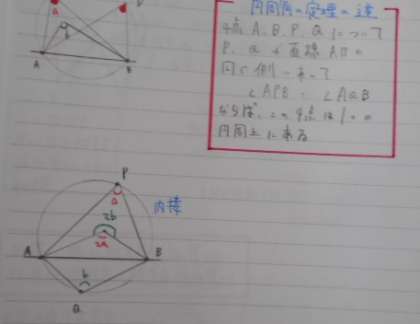 円周角の定理の逆
4点A.B.P.Qについて
P.Qが直線ABの
同じ側にあって
∠APB = ∠AQB
ならば、この4点は1つの
円周上にある
A
B
P
a
内接
2b
2a
A
B
b
Q